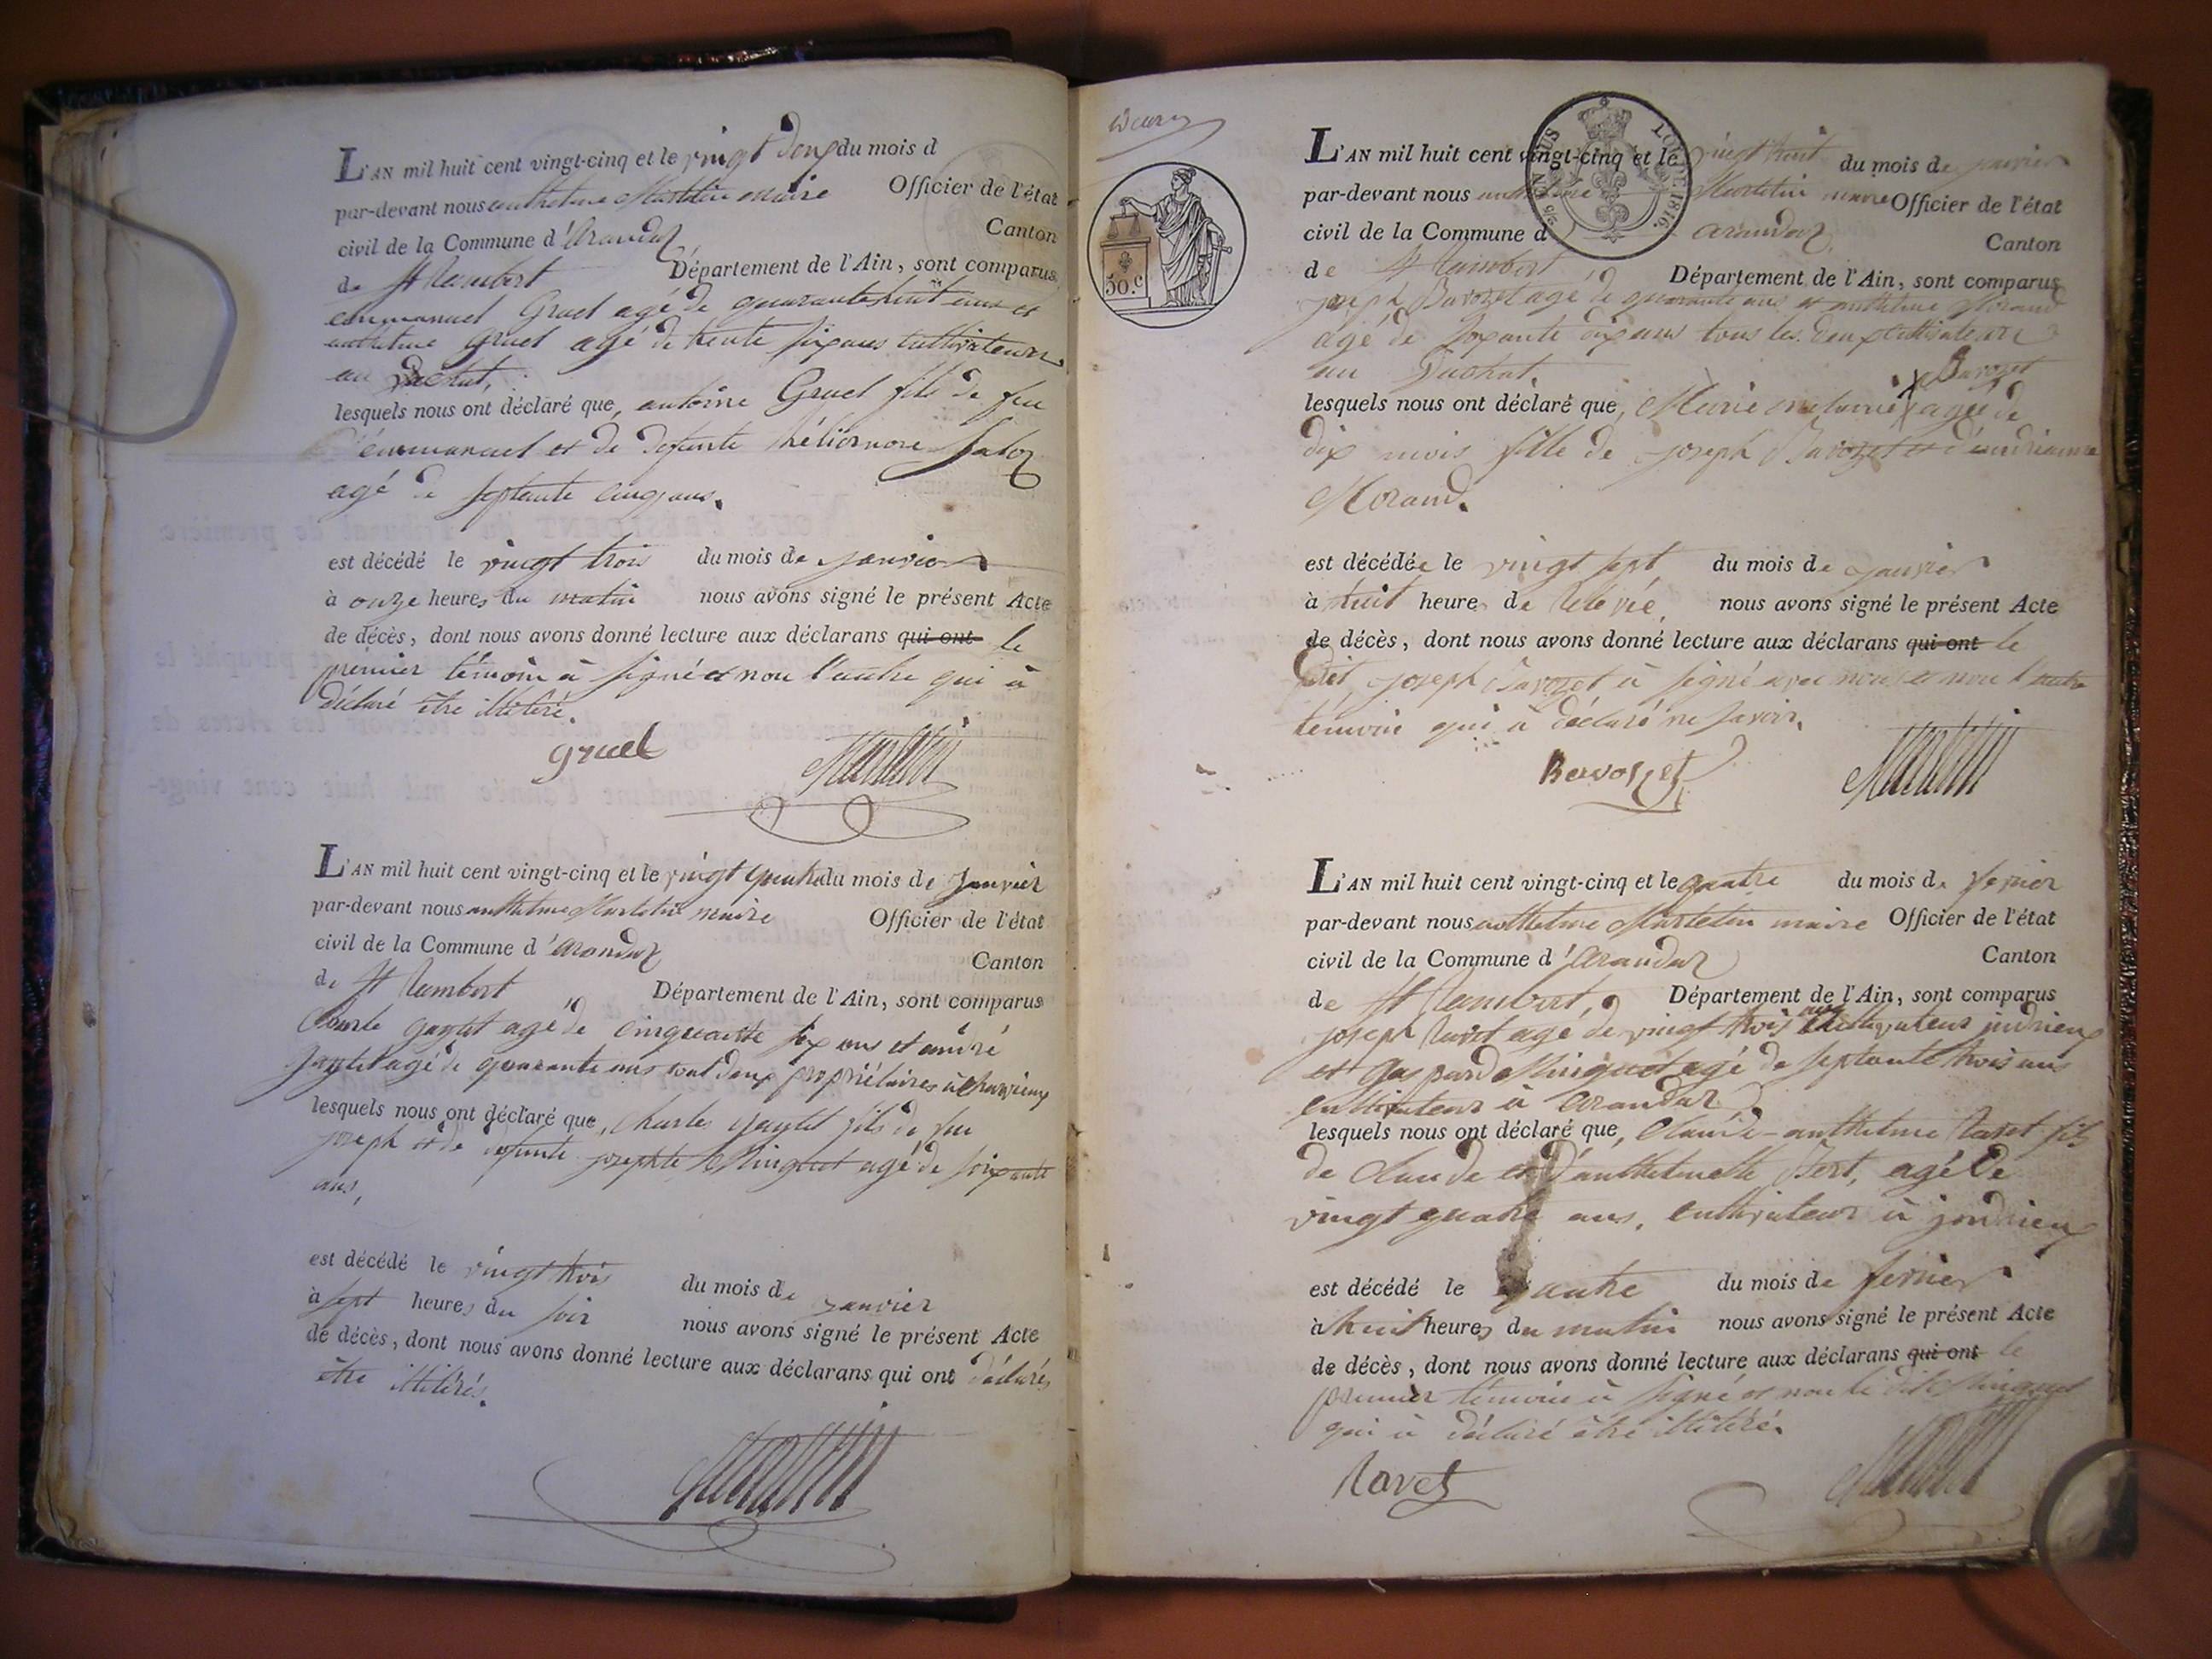 L'AN mil huit cent vingt-cinq et le vingt doux du mois d
par-devant nous anthelme Martelin maire Officier de l'état
civil de la Commune d'arandaz Canton
de St Rambert Département de l'Ain, sont comparus
emmanuel Gruel agé de quarante huit ans et
anthelme Gruel agé de trente six ans cultivateurs
au
lesquels nous ont déclaré que, antoine Gruel fils de feu
emmanuel et de defunte
agé de septante cinq ans.
est décédé le vingt trois du mois de janvier
à onze heures du matin nous avons signé le présent Acte
de décès, dont nous avons donné lecture aux déclarans qui ont le
premier témoin à signé et non l'autre qui à
déclaré être illitéré.
gruel Martelin
L'AN mil huit cent vingt-cinq et le vingt quatre du mois de Janvier
par-devant nous anthelme Martelin maire Officier de l'état
civil de la Commune d'arandaz Canton
de St Rambert Département de l'Ain, sont comparus
agé de cinquante six ans et andré
agé de quarante ans tout deux propriétaires à
lesquels nous ont déclaré que, Charles fils de feu
joseph et de defunte josephte Minguet agé de soixante
ans,
est décédé le vingt trois du mois de janvier
à sept heures du soir nous avons signé le présent Acte
de décès, dont nous avons donné lecture aux déclarans qui ont déclarés
être illitérés.
Martelin
50.c
1816.
L'AN mil huit cent vingt-cinq et le vingt huit du mois de janvier
par-devant nous anthelme Martelin maire Officier de l'état
civil de la Commune d arandaz Canton
de St Rambert Département de l'Ain, sont comparus
joseph Bavozet agé de quarante ans et anthelme Morand
agé de soixante dix ans tous les deux cultivateurs
au
Bavozet
lesquels nous ont déclaré que, Marie agée de
dix mois fille de joseph Bavozet et d'andrienne
Morand.
est décédée le vingt sept du mois de janvier
à huit heures de relevée, nous avons signé le présent Acte
de décès, dont nous avons donné lecture aux déclarans qui ont le
dit joseph Bavozet à signé avec nous et non l'autre
témoin qui à déclaré ne savoir.
Bavozet Martelin
L'AN mil huit cent vingt-cinq et le quatre du mois de fevrier
par-devant nous anthelme Martelin maire Officier de l'état
civil de la Commune d'arandaz Canton
de St Rambert, Département de l'Ain, sont comparus
joseph Ravet agé de vingt trois ans cultivateur
et gaspard Minguet agé de septante trois ans
cultivateur à arandaz
lesquels nous ont déclaré que, Claude-anthelme Ravet fils
de Claude et d'anthelmette agé de
vingt quatre ans, cultivateur à
est décédé le quatre du mois de fevrier
à huit heures du matin nous avons signé le présent Acte
de décès, dont nous avons donné lecture aux déclarans qui ont le
premier témoin à signé et non le dit Minguet
qui à déclaré être illitéré.
Ravet Martelin